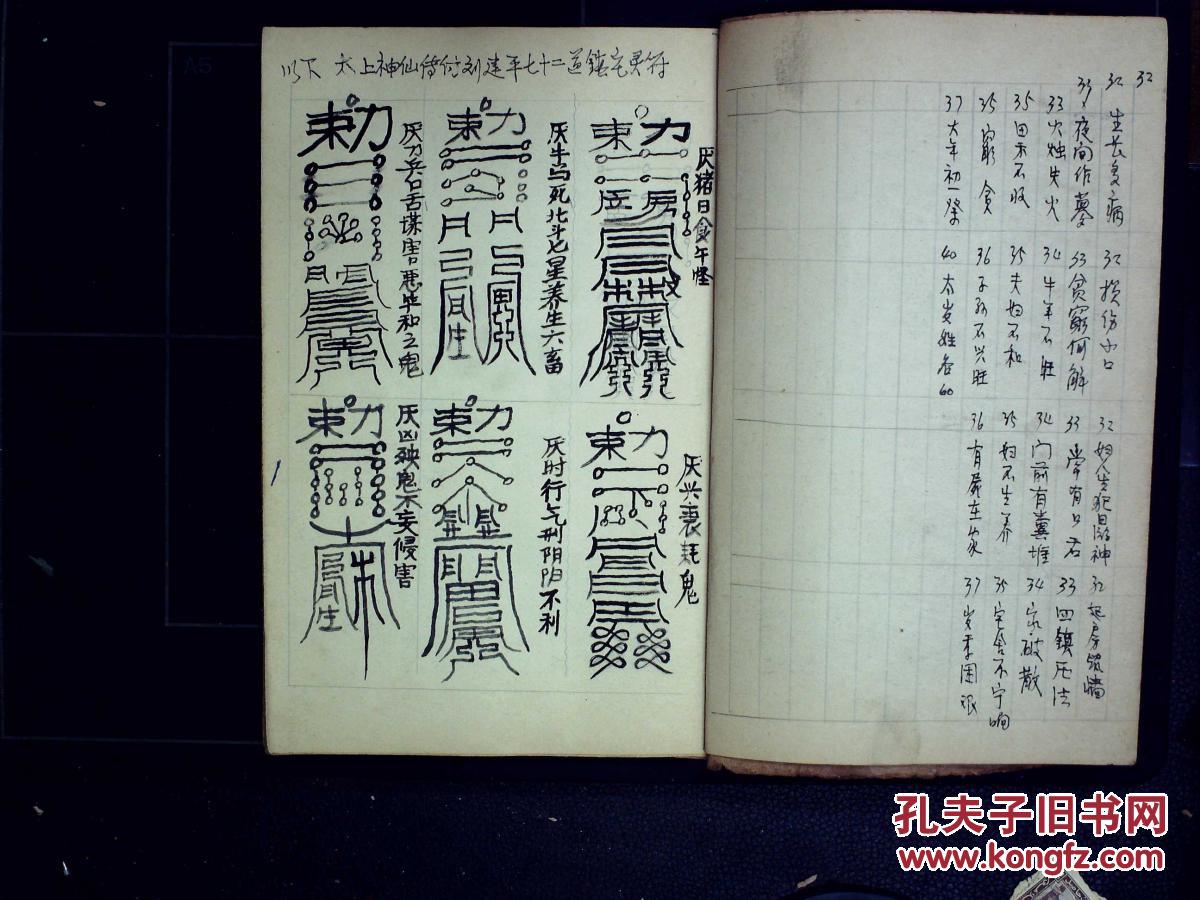 以下 太上神仙传付刘建平七十二道鎮宅灵符
勅
厌猪日食午怪
勅
厌牛马死北斗七星养生六畜
勅
厌刀兵口舌谋害恶毕和之鬼
勅
厌兴衰耗鬼
勅
厌时行气刑阴阳不利
勅
厌凶殃鬼不妄侵害
32
32 生长多病
33 夜间作墓
33 火烛失火
35 田禾不收
35 穷贫
37 大年初一祭
32 损伤小口
33 贫穷何解
34 牛羊不旺
35 夫妇不和
36 子孙不兴旺
40 太岁姓名60
32 妇人生犯日游神
33 常有口舌
34 门前有糞堆
35 妇不生养
36 有屍在家
32 起房筑墙
33 四鎮压法
34 家破散
35 宅舍不宁响
37 岁季困
孔夫子旧书网
www.kongfz.com